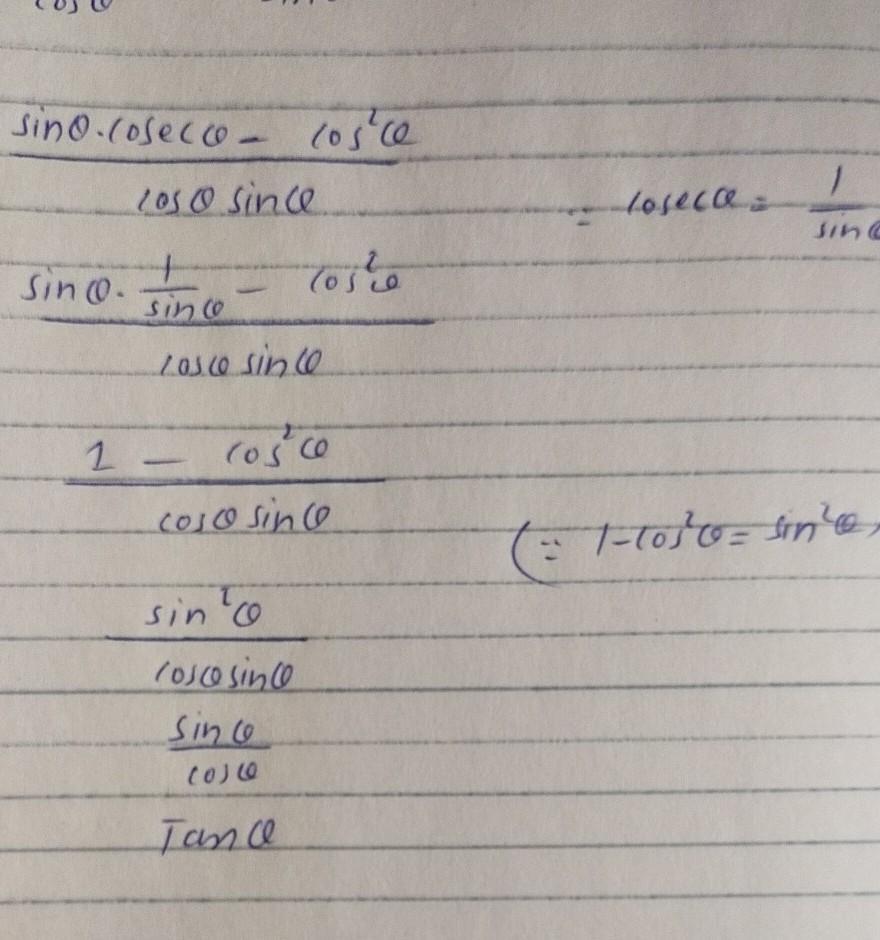 cosθ
sinθ.cosecθ - cos²θ
cosθ sinθ
∵ cosecθ = 1
sinθ
sinθ. 1 - cos²θ
sinθ
cosθ sinθ
1 - cos²θ
cosθ sinθ
(∵ 1-cos²θ = sin²θ
sin²θ
cosθ sinθ
sinθ
cosθ
Tanθ